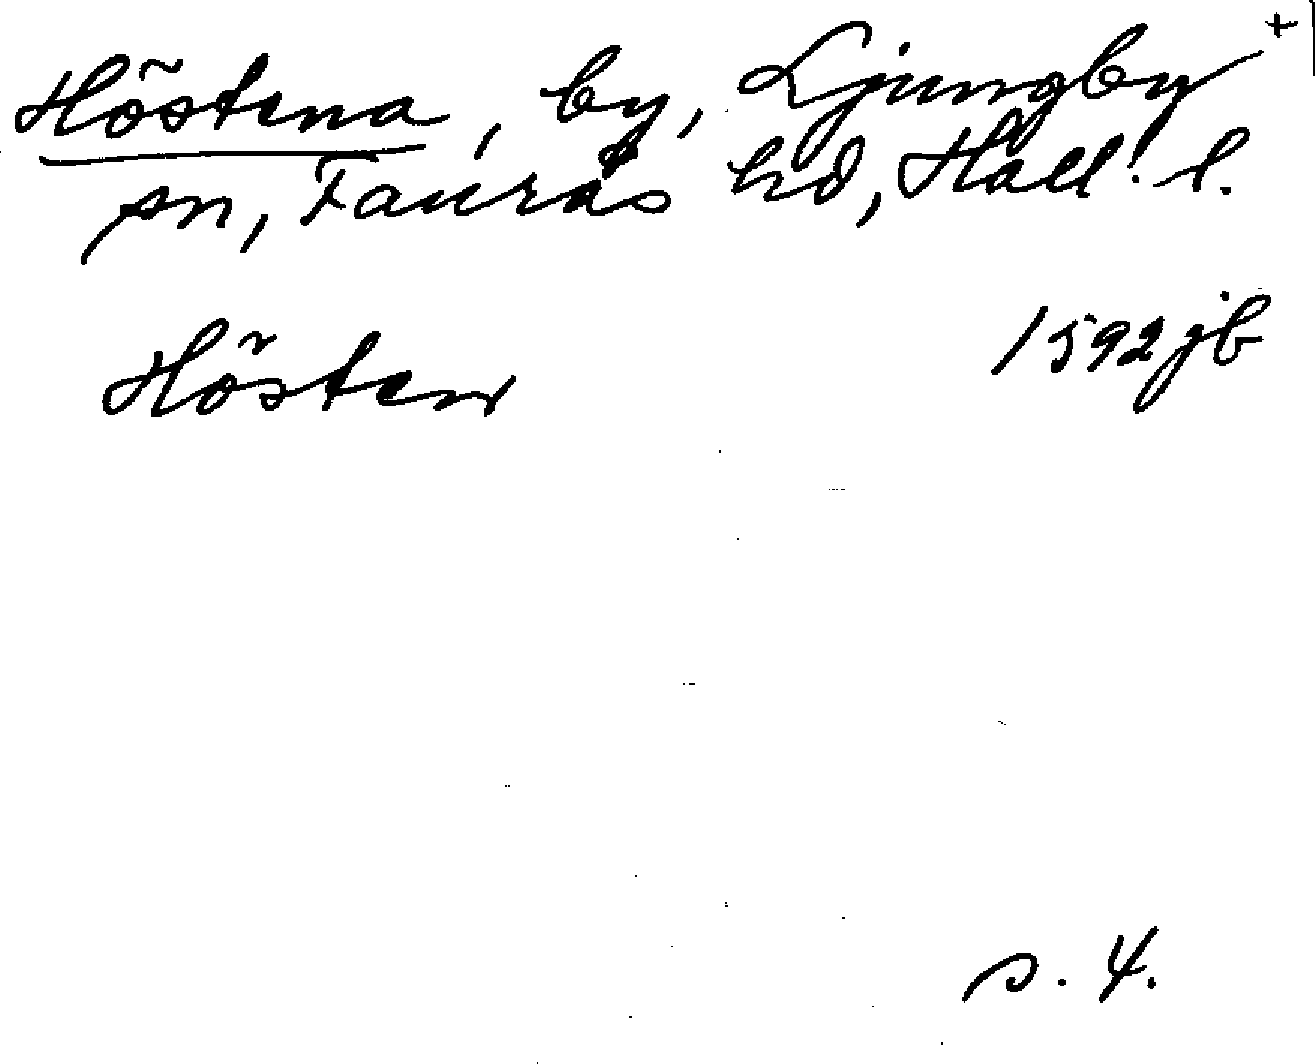 Höstena, by, Ljungby +
sn, Faurås hd, Hall. l.
Hösten 1592 jb
s. 4.